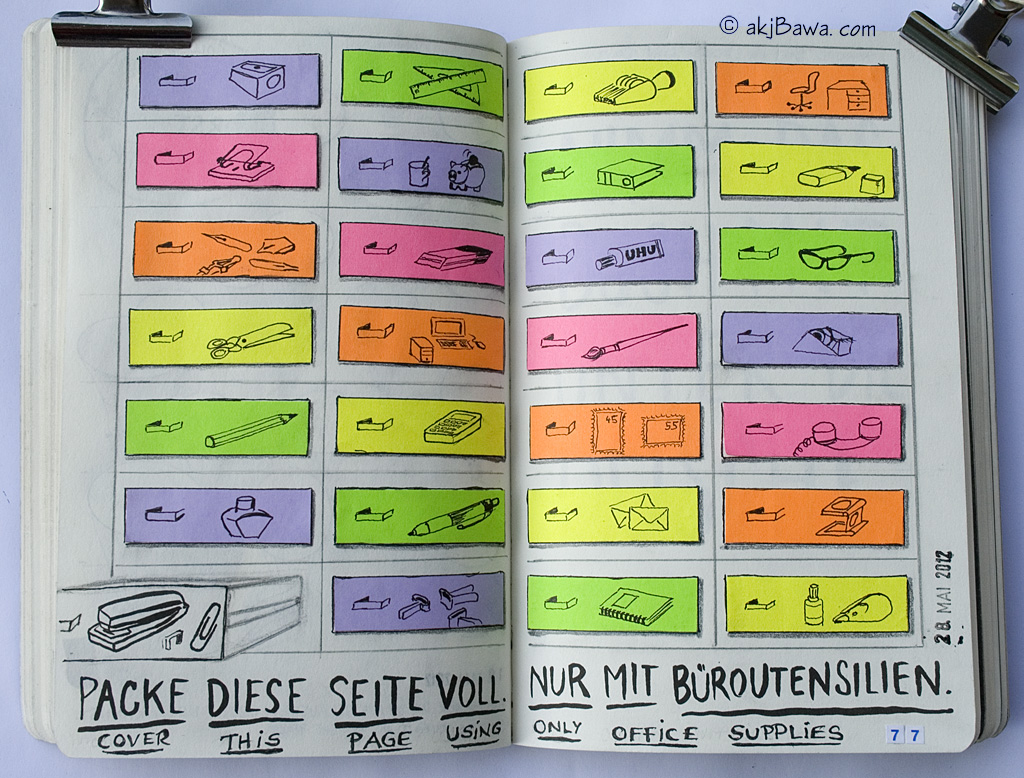 © akjBawa.com
UHU
45
55
28. MAI 2012
PACKE DIESE SEITE VOLL. NUR MIT BÜROUTENSILIEN.
COVER THIS PAGE USING ONLY OFFICE SUPPLIES
77